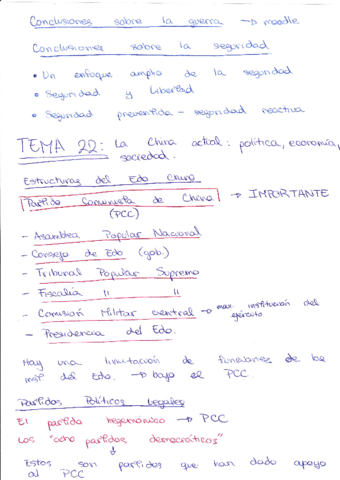 Conclusiones sobre la guerra → moodle
Conclusiones sobre la seguridad
• Un enfoque amplio de la seguridad
• Seguridad y Libertad
• Seguridad preventida - seguridad reactiva
TEMA 22: La China actual: política, economía,
sociedad.
Estructuras del Edo Chino
Partido Comunista de China → IMPORTANTE
(PCC)
- Asamblea Popular Nacional
- Consejo de Edo (gob.)
- Tribunal Popular Supremo
- Fiscalía " "
- Comisión Militar central → max. institución del
ejército
- Presidencia del Edo.
Hay una limitación de funciones de las
inst del Edo. → bajo el PCC.
Partidos Políticos Legales
El partido hegemónico → PCC
Los "ocho partidos democráticos"
↓
Estos son partidos que han dado apoyo
al PCC